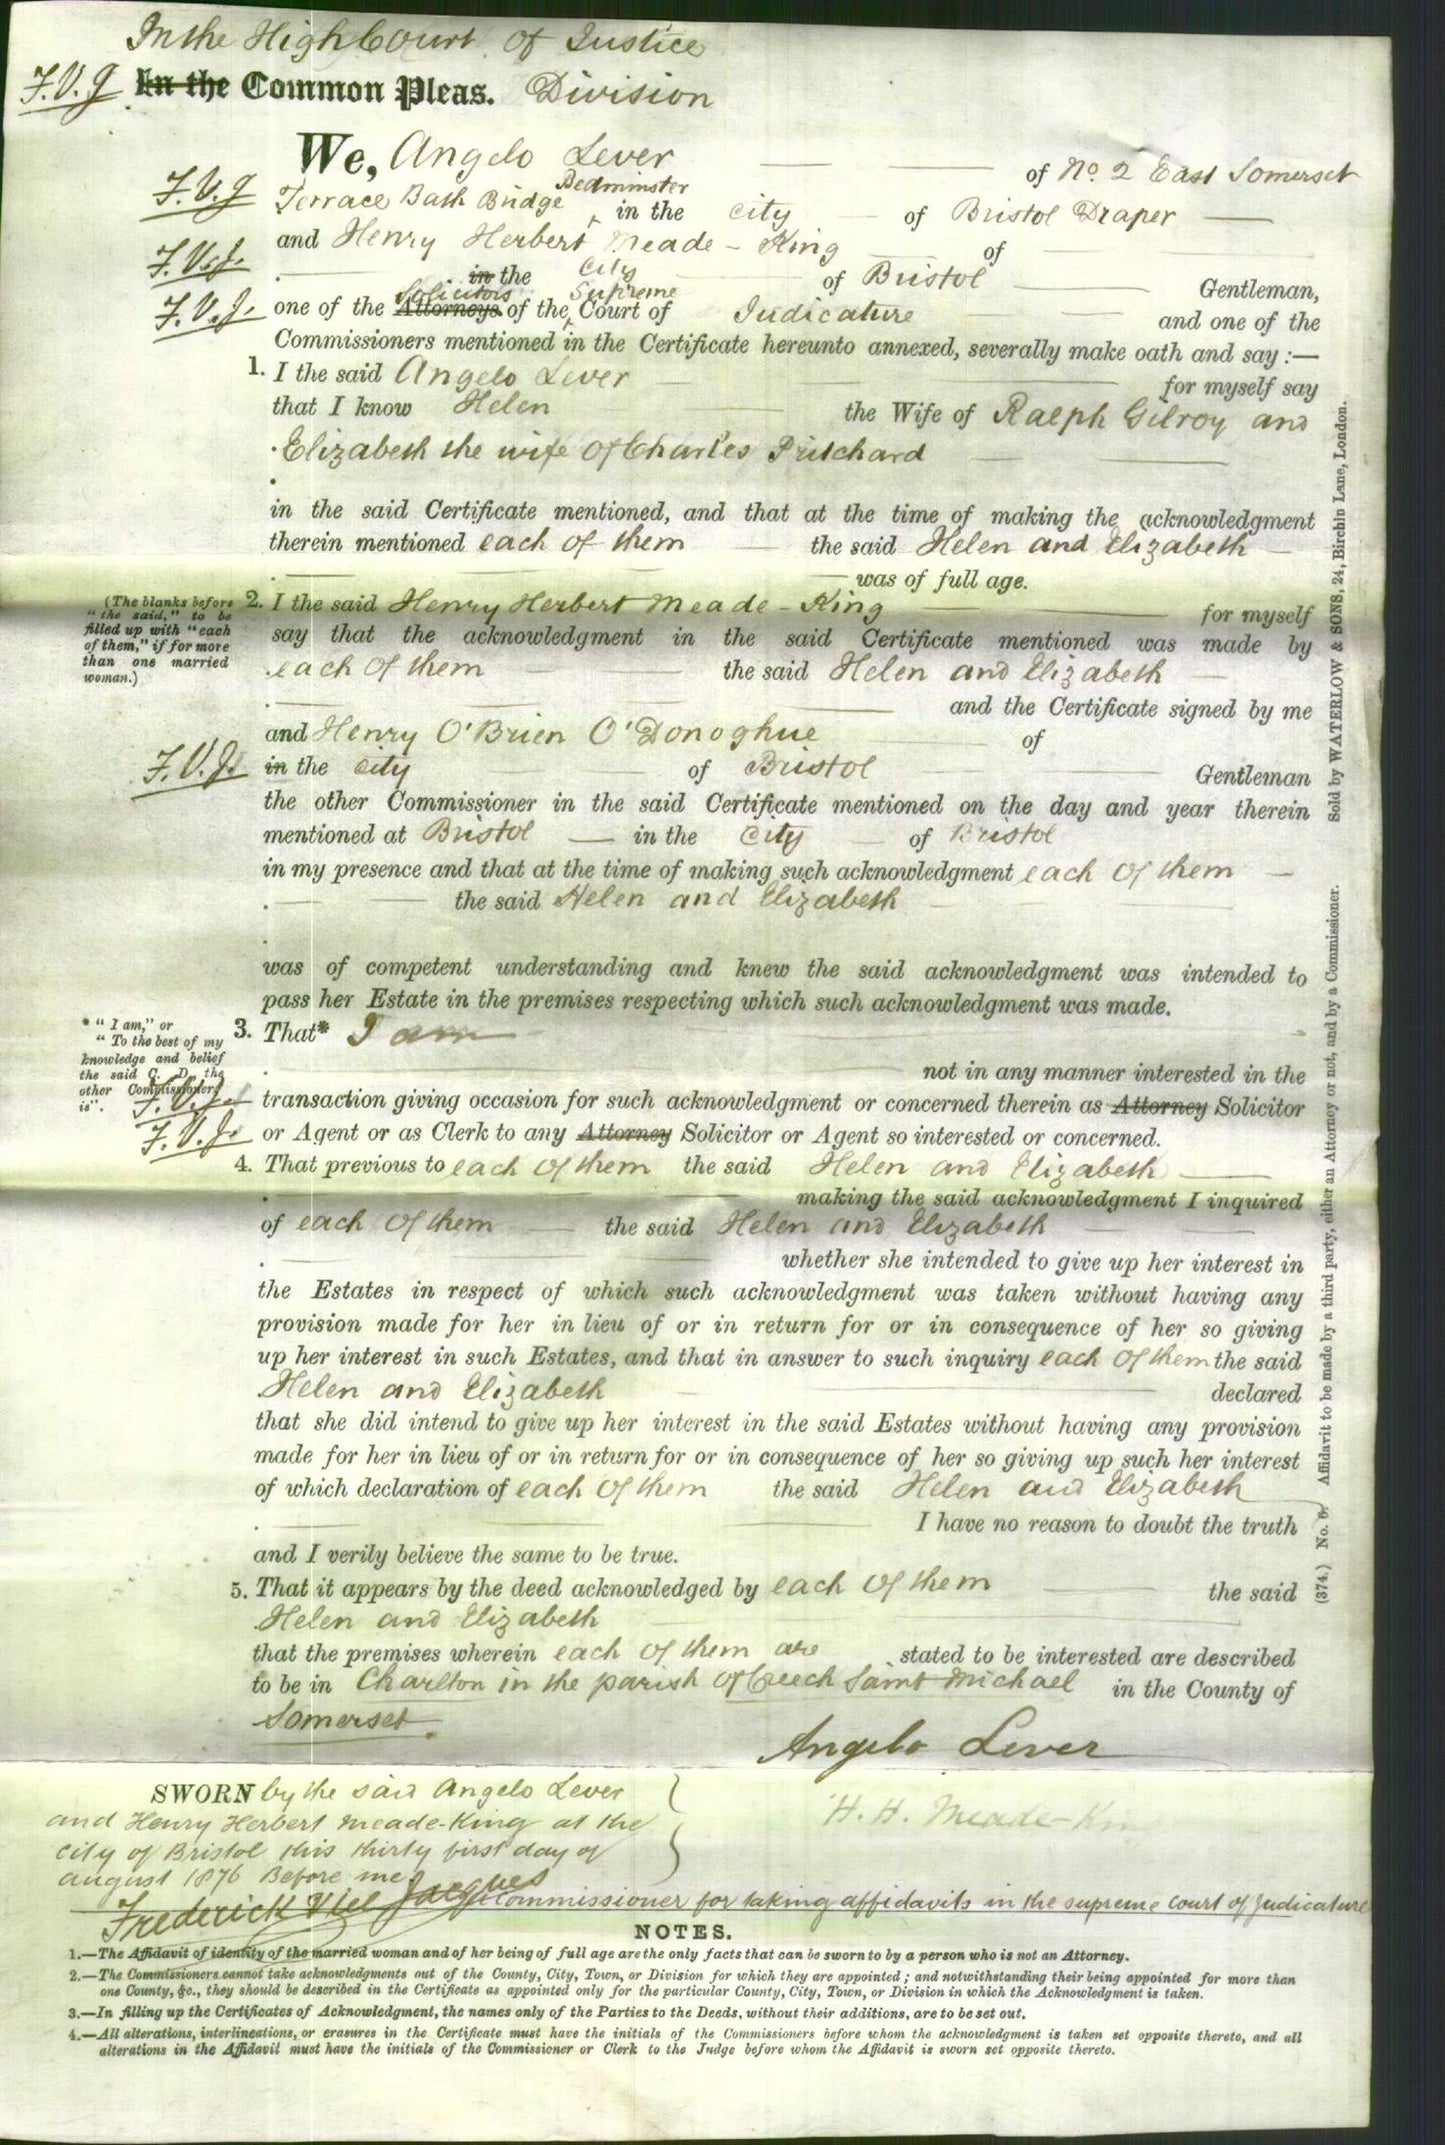 In the High Court of Justice
F.V.J. In the Common Pleas. Division
We, Angelo Lever of No. 2 East Somerset
F.V.J. Terrace Bath Bridge Bedminster in the city of Bristol Draper
and Henry Herbert Meade-King of
F.V.J. in the City of Bristol Gentleman,
F.V.J. one of the Attorneys Solicitors of the Supreme Court of Judicature and one of the
Commissioners mentioned in the Certificate hereunto annexed, severally make oath and say :—
1. I the said Angelo Lever for myself say
that I know Helen the Wife of Ralph Gilroy and
Elizabeth the wife of Charles Pritchard
in the said Certificate mentioned, and that at the time of making the acknowledgment
therein mentioned each of them the said Helen and Elizabeth
was of full age.
(The blanks before
"the said," to be
filled up with "each
of them," if for more
than one married
woman.)
2. I the said Henry Herbert Meade-King for myself
say that the acknowledgment in the said Certificate mentioned was made by
each of them the said Helen and Elizabeth
and the Certificate signed by me
and Henry O'Brien O'Donoghue of
F.V.J. in the city of Bristol Gentleman
the other Commissioner in the said Certificate mentioned on the day and year therein
mentioned at Bristol in the city of Bristol
in my presence and that at the time of making such acknowledgment each of them
the said Helen and Elizabeth
was of competent understanding and knew the said acknowledgment was intended to
pass her Estate in the premises respecting which such acknowledgment was made.
* "I am," or
"To the best of my
knowledge and belief
the said C. D. the
other Commissioner
is".
3. That* I am
not in any manner interested in the
F.V.J. transaction giving occasion for such acknowledgment or concerned therein as Attorney Solicitor
F.V.J. or Agent or as Clerk to any Attorney Solicitor or Agent so interested or concerned.
4. That previous to each of them the said Helen and Elizabeth
making the said acknowledgment I inquired
of each of them the said Helen and Elizabeth
whether she intended to give up her interest in
the Estates in respect of which such acknowledgment was taken without having any
provision made for her in lieu of or in return for or in consequence of her so giving
up her interest in such Estates, and that in answer to such inquiry each of them the said
Helen and Elizabeth declared
that she did intend to give up her interest in the said Estates without having any provision
made for her in lieu of or in return for or in consequence of her so giving up such her interest
of which declaration of each of them the said Helen and Elizabeth
I have no reason to doubt the truth
and I verily believe the same to be true.
5. That it appears by the deed acknowledged by each of them the said
Helen and Elizabeth
that the premises wherein each of them are stated to be interested are described
to be in Charlton in the parish of Creech Saint Michael in the County of
Somerset.
Angelo Lever
SWORN by the said Angelo Lever
and Henry Herbert Meade-King at the
city of Bristol this thirty first day of
august 1876 Before me
H. H. Meade-King
Frederick Viel Jacques a Commissioner for taking affidavits in the supreme court of Judicature
NOTES.
1.—The Affidavit of identity of the married woman and of her being of full age are the only facts that can be sworn to by a person who is not an Attorney.
2.—The Commissioners cannot take acknowledgments out of the County, City, Town, or Division for which they are appointed; and notwithstanding their being appointed for more than
one County, &c., they should be described in the Certificate as appointed only for the particular County, City, Town, or Division in which the Acknowledgment is taken.
3.—In filling up the Certificates of Acknowledgment, the names only of the Parties to the Deeds, without their additions, are to be set out.
4.—All alterations, interlineations, or erasures in the Certificate must have the initials of the Commissioners before whom the acknowledgment is taken set opposite thereto, and all
alterations in the Affidavit must have the initials of the Commissioner or Clerk to the Judge before whom the Affidavit is sworn set opposite thereto.
(374.) No. 6. Affidavit to be made by a third party, either an Attorney or not, and by a Commissioner. Sold by WATERLOW & SONS, 24, Birchin Lane, London.